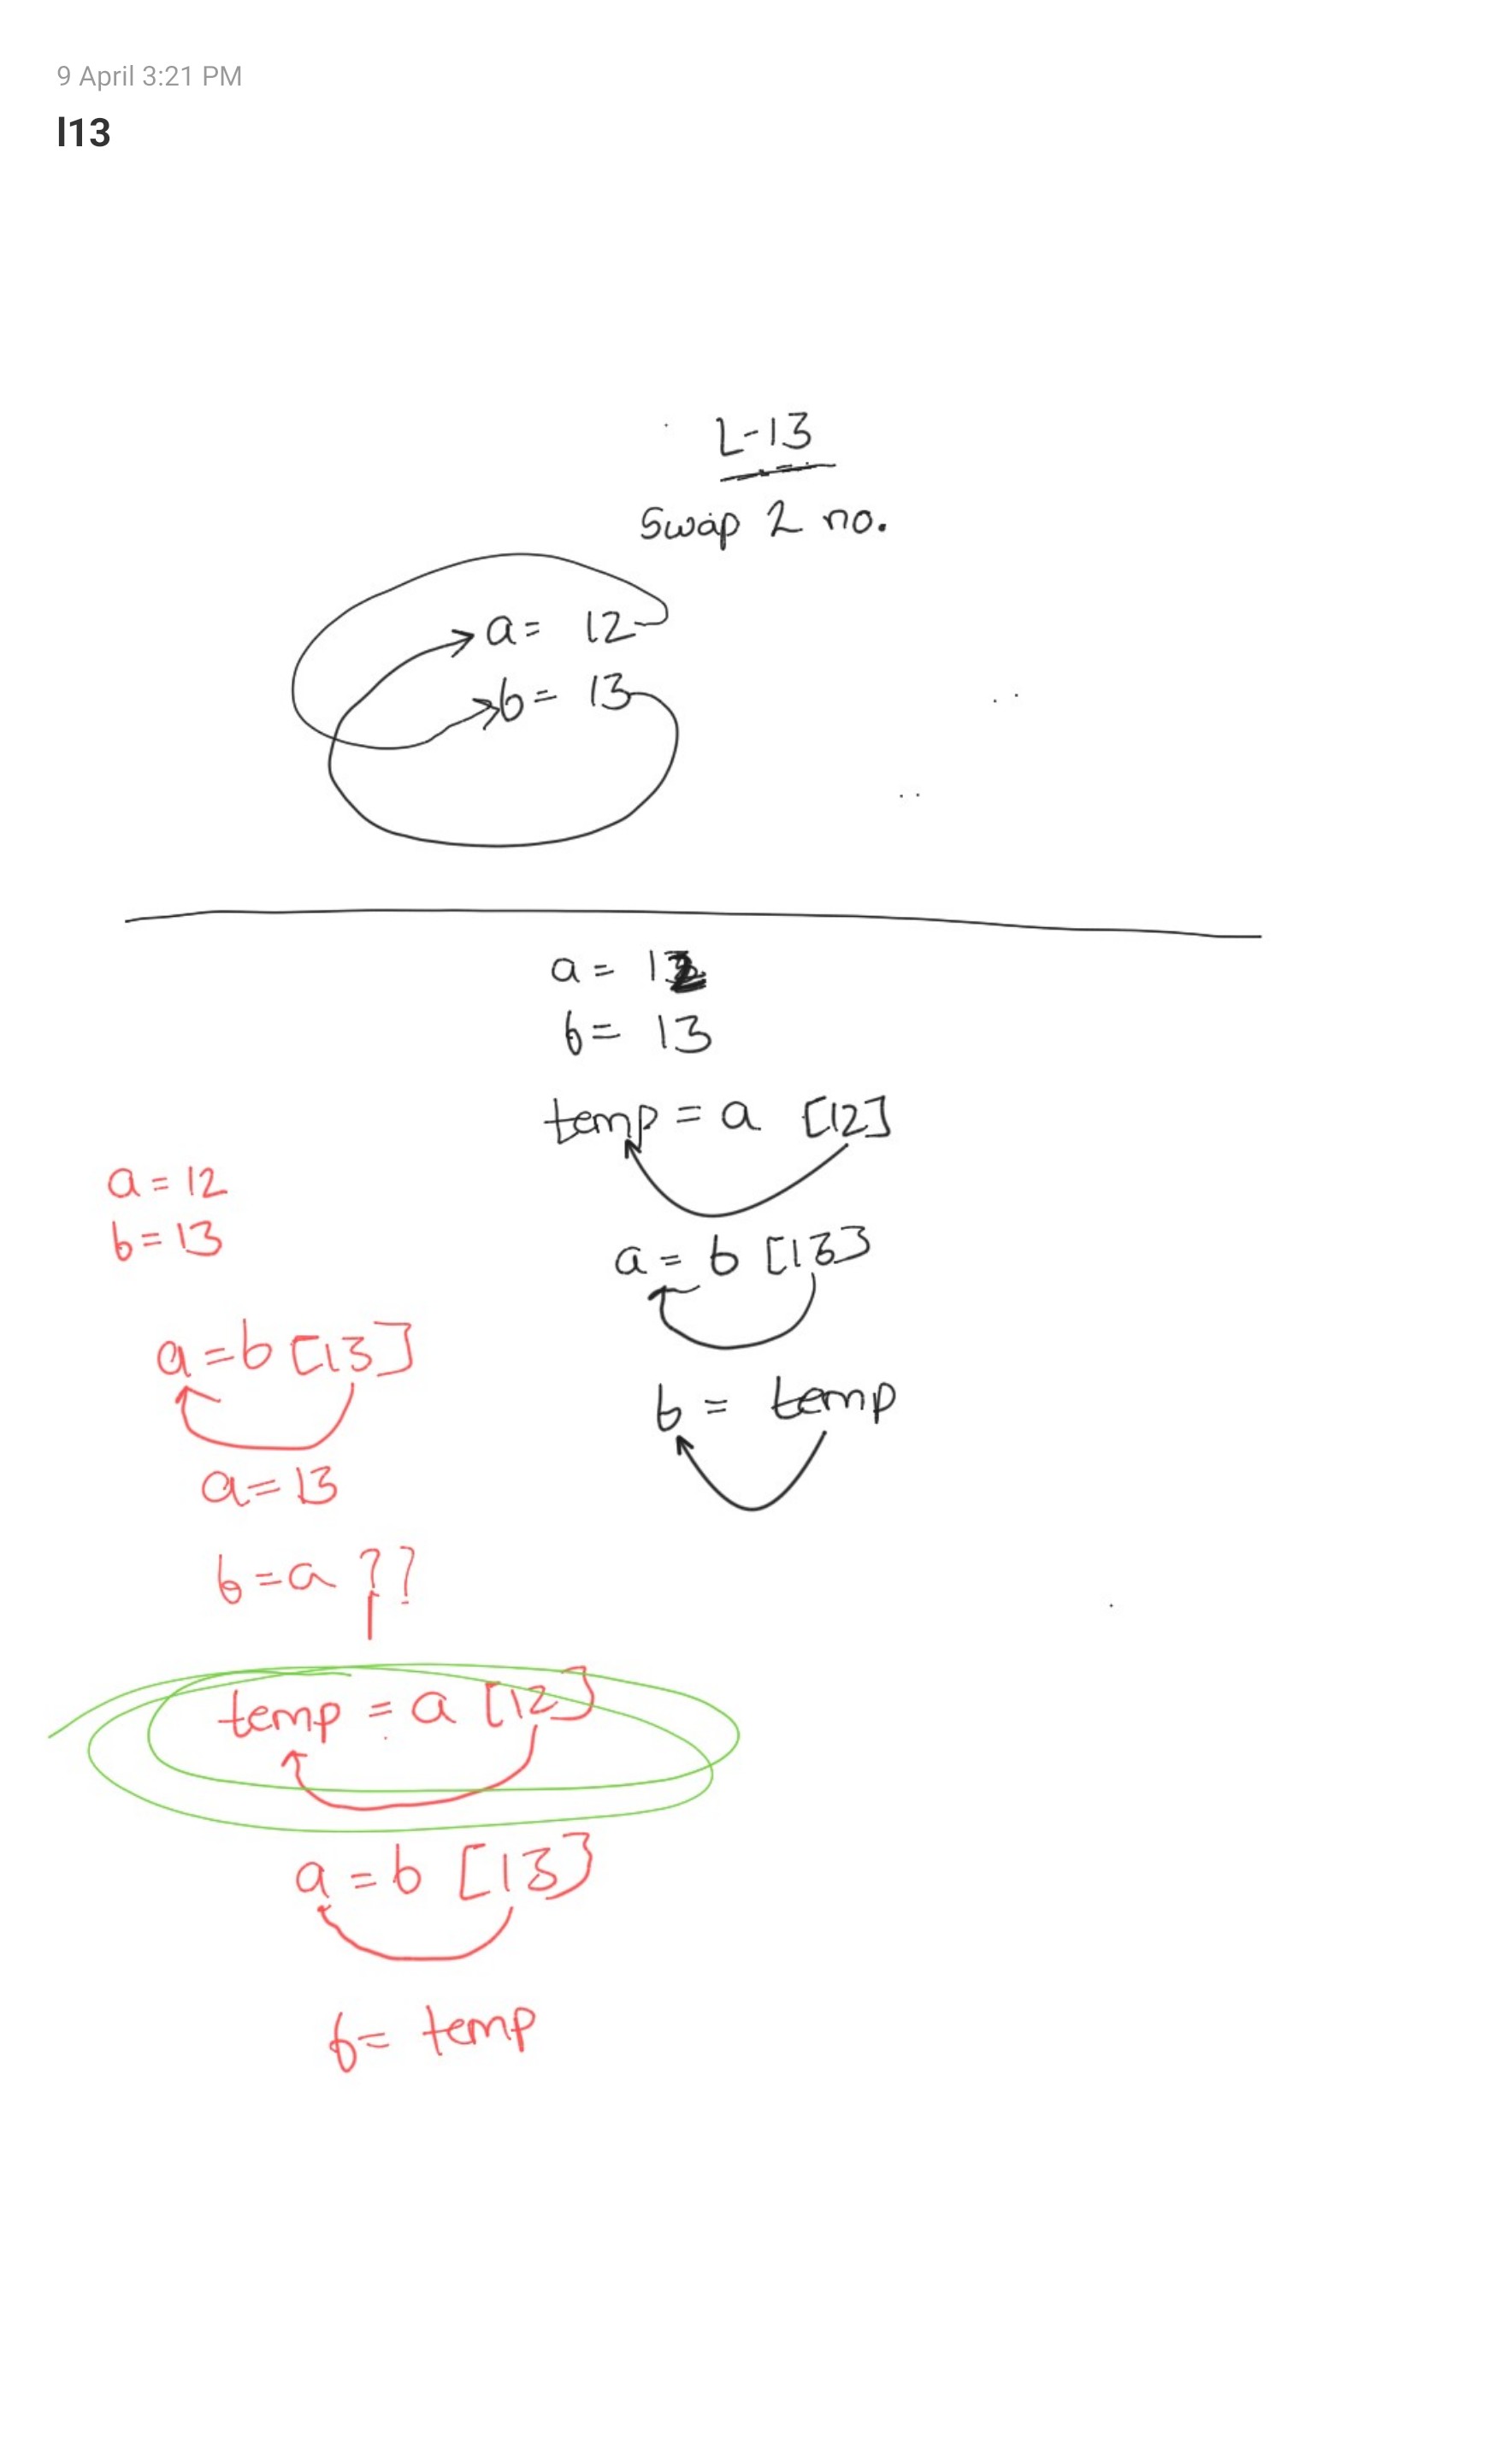 9 April 3:21 PM
l13
L-13
Swap 2 no.
a = 12
b = 13
a = 12
b = 13
temp = a [12]
a = b [13]
b = temp
a = 12
b = 13
a = b [13]
a = 13
b = a ??
temp = a [12]
a = b [13]
b = temp